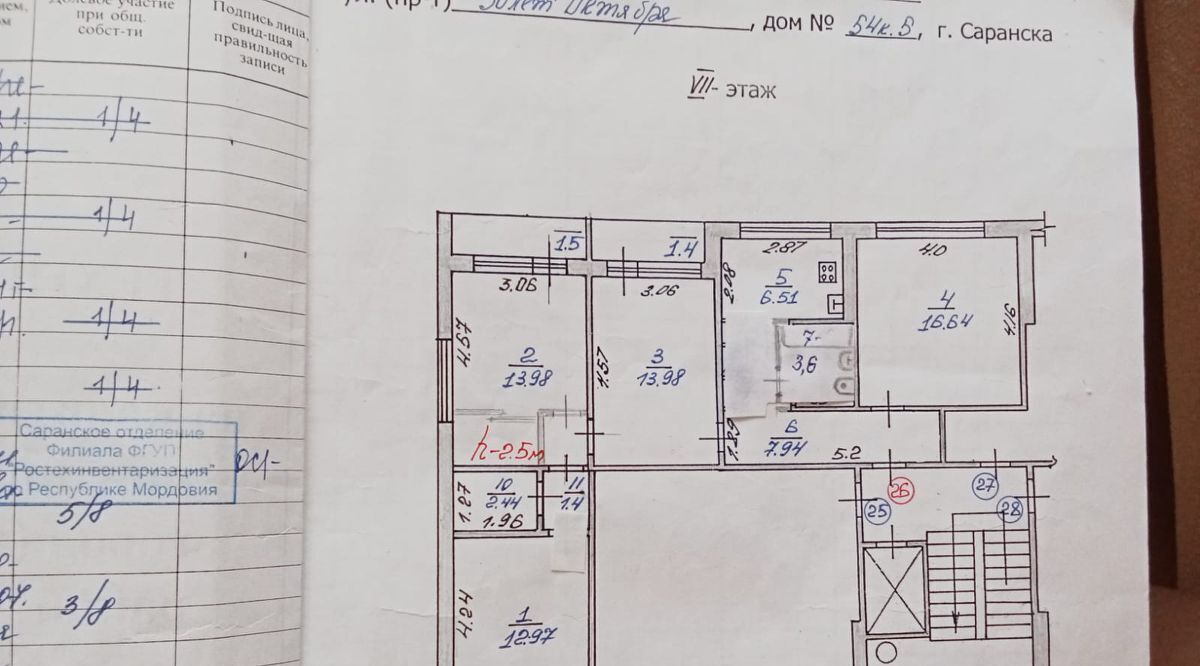 Долевое участие
при общ.
собст-ти
Подпись лица,
свид-щая
правильность
записи
1/4
1/4
1/4
1/4
Саранское отделение
Филиала ФГУП
"Ростехинвентаризация"
по Республике Мордовия
5/8
3/8
50 лет Октября, дом № 54к.5, г. Саранска
VII - этаж
1.5
1.4
3.06
3.06
2.87
4.0
2.08
5
6.51
4
16.64
4.16
4.57
2
13.98
4.57
3
13.98
7
3,6
h-2.5м
1.89
6
7.94
5.2
10
2.44
1.87
1.96
11
1.4
26
27
25
28
4.24
1
12.97